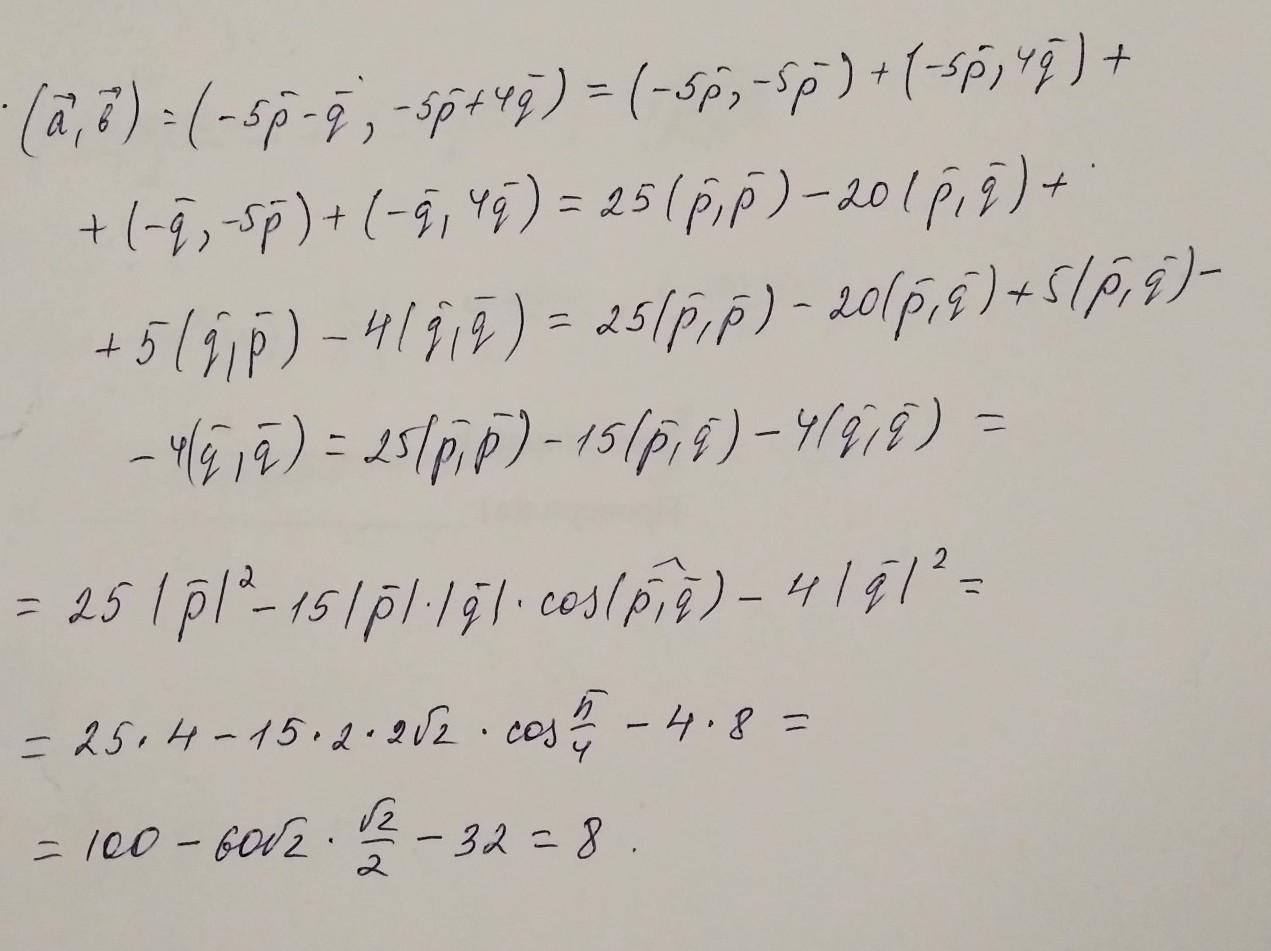 (a⃗, b⃗) = (-5p̄ - q̄, -5p̄ + 4q̄) = (-5p̄, -5p̄) + (-5p̄, 4q̄) +
+ (-q̄, -5p̄) + (-q̄, 4q̄) = 25(p̄, p̄) - 20(p̄, q̄) +
+ 5(q̄, p̄) - 4(q̄, q̄) = 25(p̄, p̄) - 20(p̄, q̄) + 5(p̄, q̄) -
- 4(q̄, q̄) = 25(p̄, p̄) - 15(p̄, q̄) - 4(q̄, q̄) =
= 25|p̄|² - 15|p̄|·|q̄|· cos(p̄,^q̄) - 4|q̄|² =
= 25·4 - 15·2·2√2 · cos π/4 - 4·8 =
= 100 - 60√2 · √2/2 - 32 = 8.